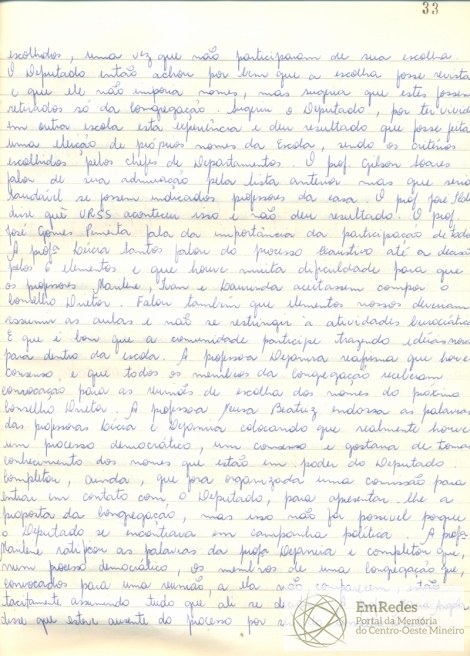 33
escolhidos, uma vez que não participaram de sua escolha.
O Deputado então achou por bem que a escolha fosse revista
e que ele não imporia nomes, mas sugeria que estes fossem
retirados só da Congregação. Sugeriu o Deputado, por ter vivido
em outra escola esta experiência e deu resultado que fosse feita
uma eleição de próprios nomes da Escola, sendo os critérios
escolhidos pelos chefes de Departamentos. O prof. Gilson Soares
falou de sua admiração pela lista anterior mas que seria
saudável se fossem indicados professores da casa. O prof. José
disse que URSS aconteceu isso e não deu resultado. O prof.
José Gomes Pimenta fala da importância da participação de todos.
A profª Lúcia Santos falou do processo exaustivo até a decisão
pelos 6 elementos e que houve muita dificuldade para que
os professores Marlene, Ivan e aceitassem compor o
Conselho Diretor. Falou também que elementos nossos deveriam
assumir as aulas e não se restringir a atividades burocráticas
E que é bom que a comunidade participe trazendo idéias novas
para dentro da Escola. A professora Dejanira reafirma que houve
consenso e que todos os membros da Congregação receberam
convocação para as reuniões de escolha dos nomes do próximo
Conselho Diretor. A professora Neusa Beatriz endossa as palavras
das professoras Lúcia e Dejanira colocando que realmente houve
um processo democrático, um consenso e gostaria de tomar
conhecimento dos nomes que estão em poder do Deputado.
Completou, ainda, que fora organizada uma comissão para
entrar em contato com o Deputado, para apresentar-lhe a
proposta da Congregação, mas isso não foi possível porque
o Deputado se encontrava em campanha política. A profª
Marlene ratificou as palavras da profª Dejanira e completou que,
num processo democrático, os membros de uma Congregação que,
convocados para uma reunião, a ela não comparecem, estão
tacitamente assumindo tudo que ali se
disse que esteve ausente do processo por
EmRedes
Portal da Memória
do Centro-Oeste Mineiro